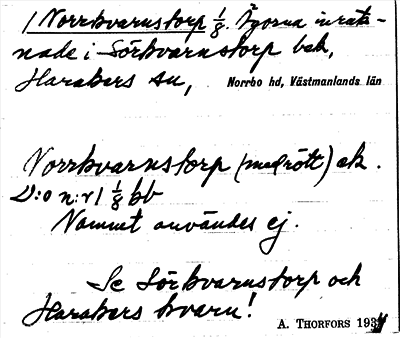 1 Norrkvarnstorp 1/8. Ägorna inräk-
nade i Sörkvarnstorp bek,
Harakers sn, Norrbo hd, Västmanlands län
Norrkvarnstorp (med rött) ek.
D:o n:r 1 1/8 bb
Namnet användes ej.
Se Sörkvarnstorp och
Harakers kvarn!
A. THORFORS 1934